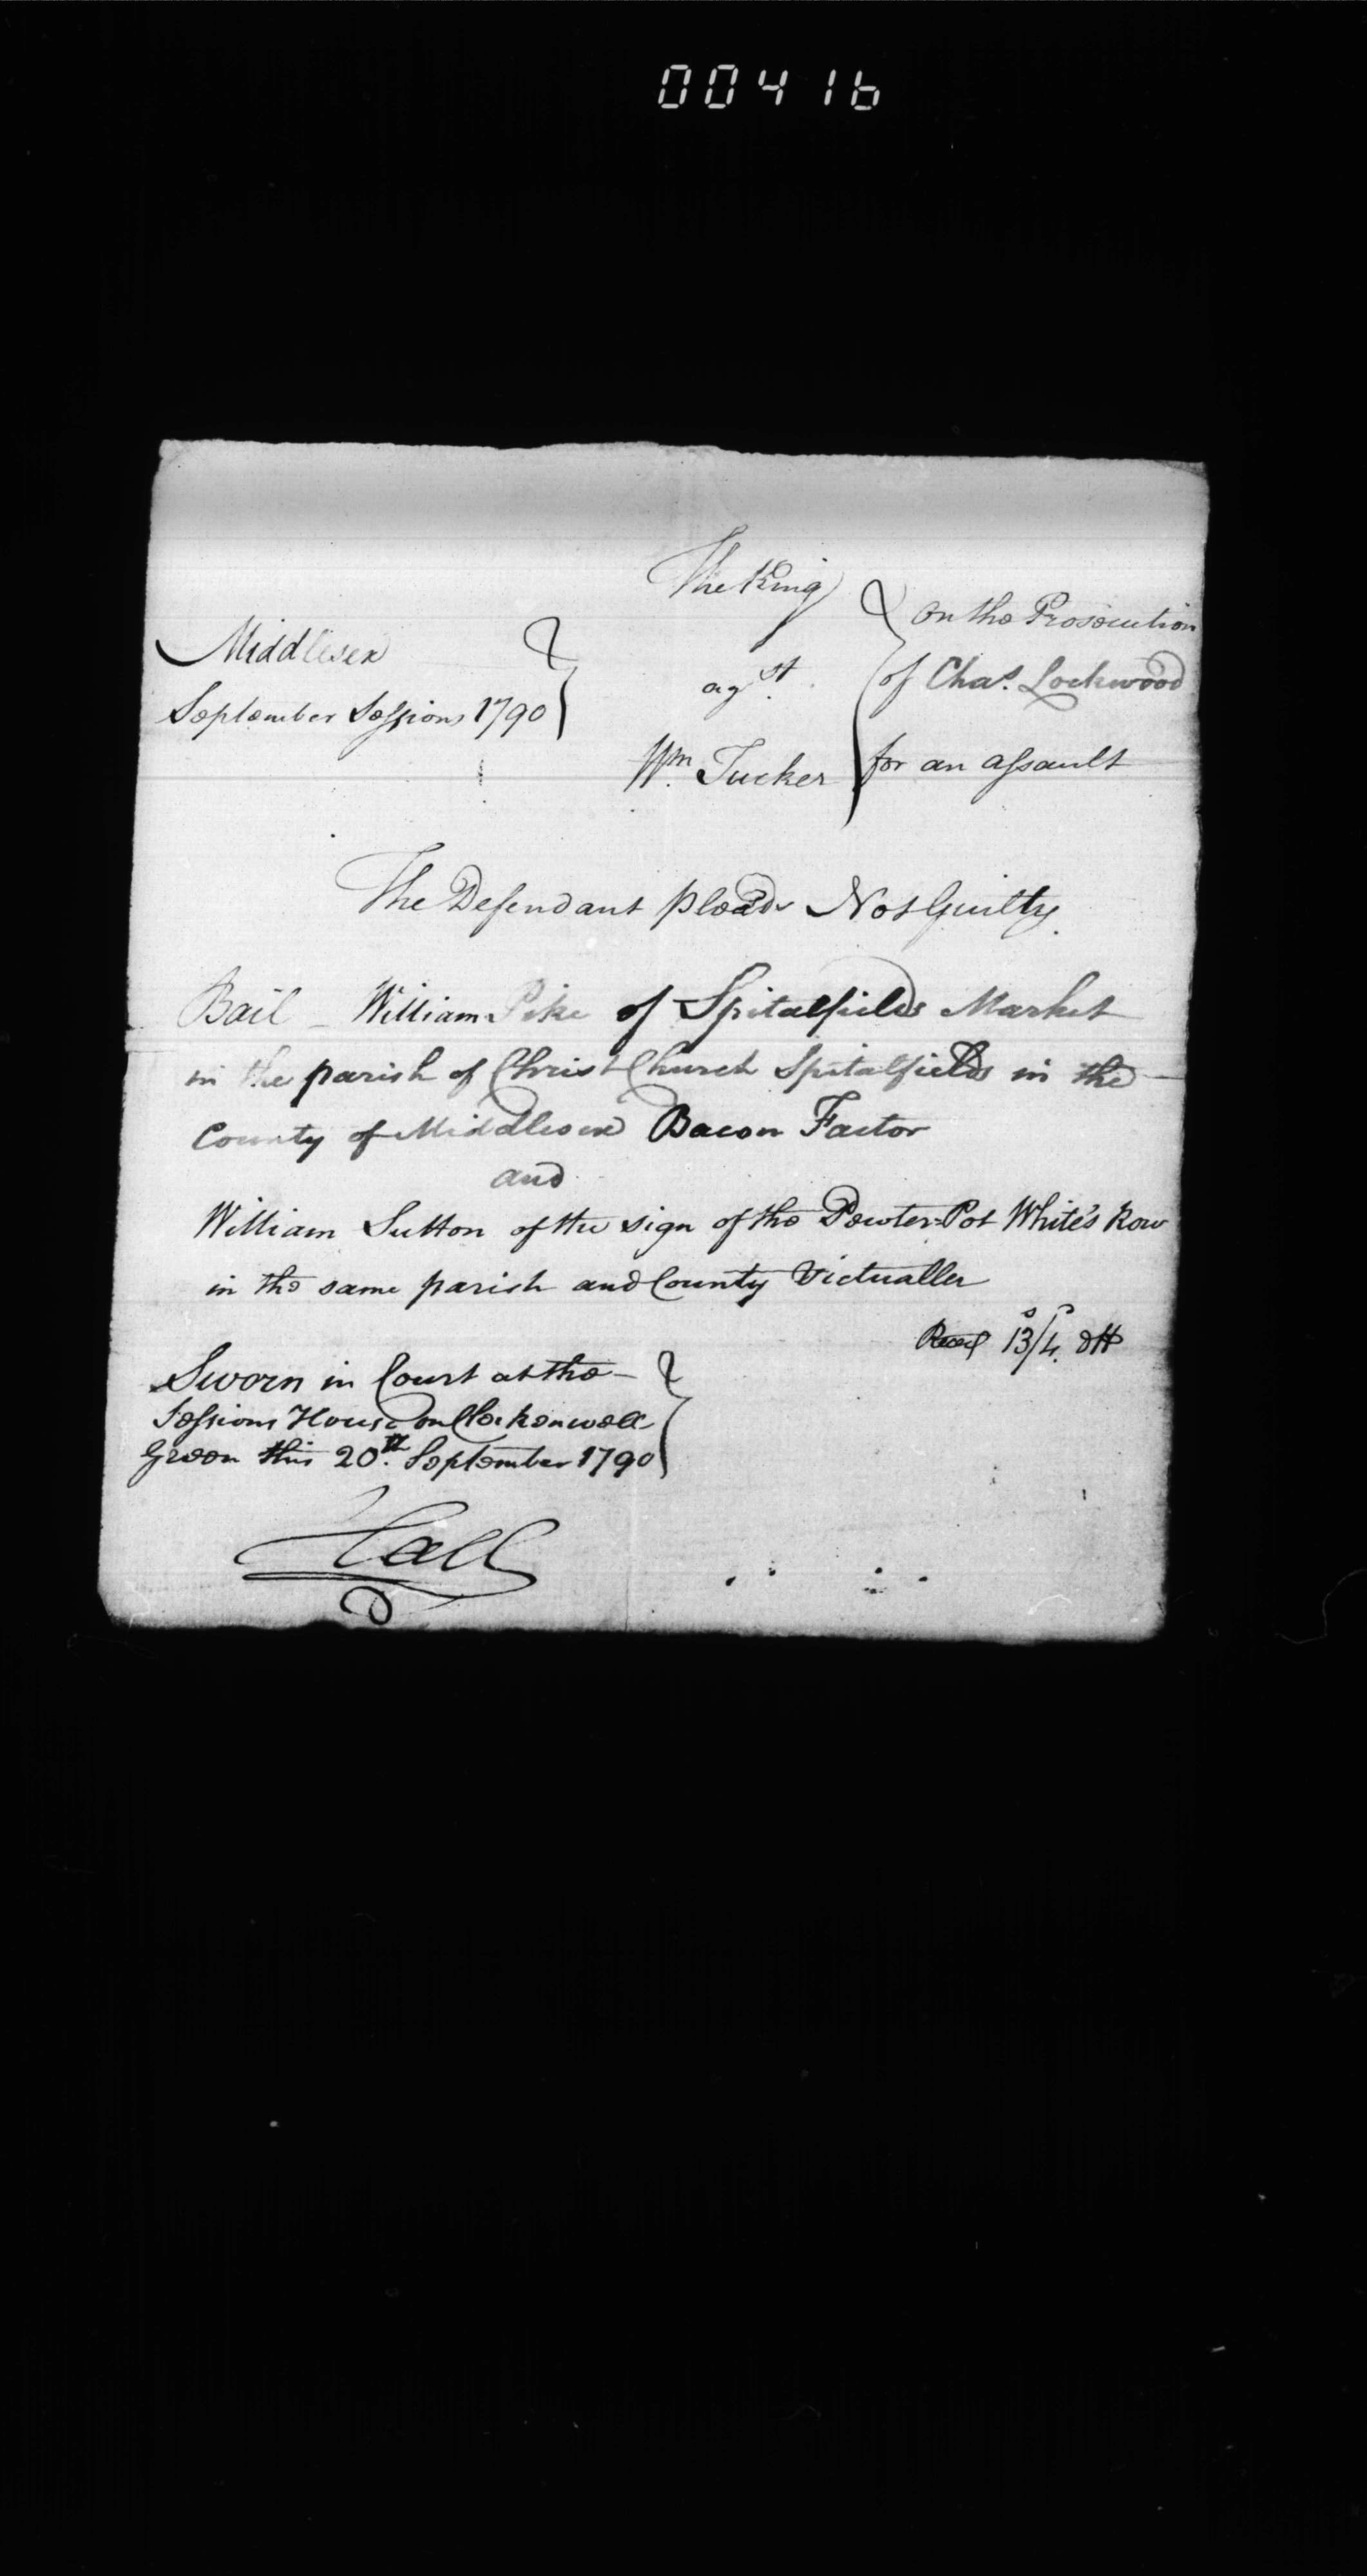 00416
The King
Middlesex
September Sessions 1790
agst.
Wm. Tucker
on the Prosecution
of Chas. Lockwood
for an assault
The Defendant pleads Not Guilty.
Bail - William Pike of Spitalfields Market
in the parish of Christ Church Spitalfields in the
County of Middlesex Bacon Factor
and
William Sutton of the sign of the Pewter-Pot White's Row
in the same parish and County Victualler
13/4.
Sworn in Court at the
Sessions House on Clerkenwell
Green this 20th. September 1790
Hall